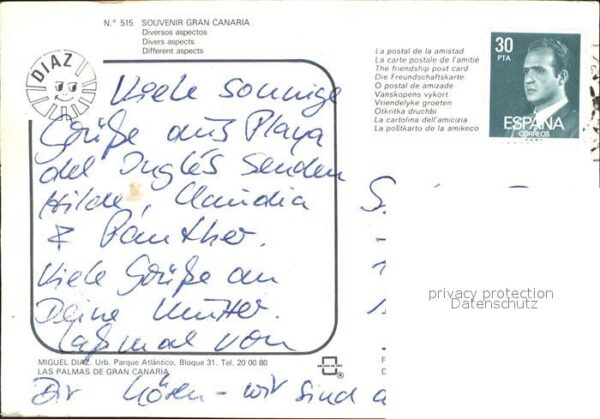 N.º 515 SOUVENIR GRAN CANARIA
Diversos aspectos
Divers aspects
Different aspects
DIAZ
La postal de la amistad
La carte postale de l'amitié
The friendship post card
Die Freundschaftskarte
O postal de amizade
Vanskopens vykort
Vriendelyke groeten
Otkritka druchbi
La cartolina dell'amicizia
La poŝtkarto de la amikeco
30
PTA
ESPAÑA
CORREOS
Viele sonnige
Grüße aus Playa
del Inglés senden
Hilde, Claudia
& Panther.
Viele Grüße an
Deine Mutter.
Laßmal von
Dir hören - wir sind
privacy protection
Datenschutz
MIGUEL DIAZ. Urb. Parque Atlántico, Bloque 31. Tel. 20 00 80
LAS PALMAS DE GRAN CANARIA